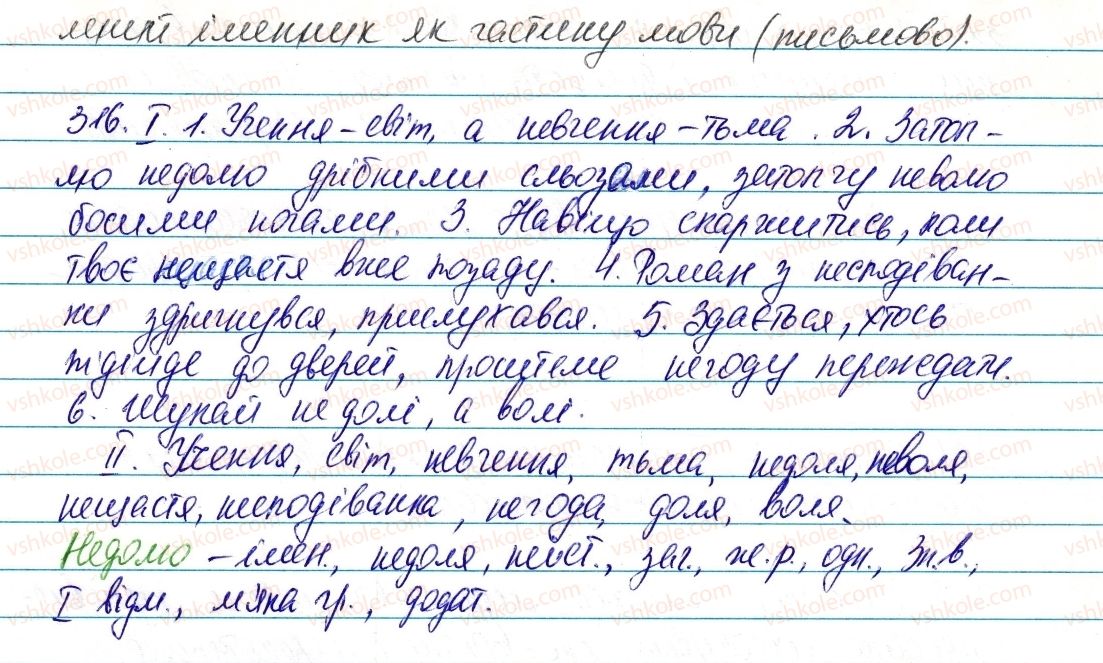 лений іменник як частину мови (письмово).
316. I. 1. Учення – світ, а невчення – тьма. 2. Затоп-
лю недолю дрібними сльозами, затопчу неволю
босими ногами. 3. Навіщо скаржитись, коли
твоє нещастя вже позаду. 4. Роман з несподіван-
ки здригнувся, прислухався. 5. Здається, хтось
підійде до дверей, проситиме негоду переждати.
6. Шукай не долі, а волі.
II. Учення, світ, невчення, тьма, недоля, неволя,
нещастя, несподіванка, негода, доля, воля.
Недолю – імен., недоля, неіст., заг., ж.р., одн., Зн.в.,
I відм., м'яка гр., додат.